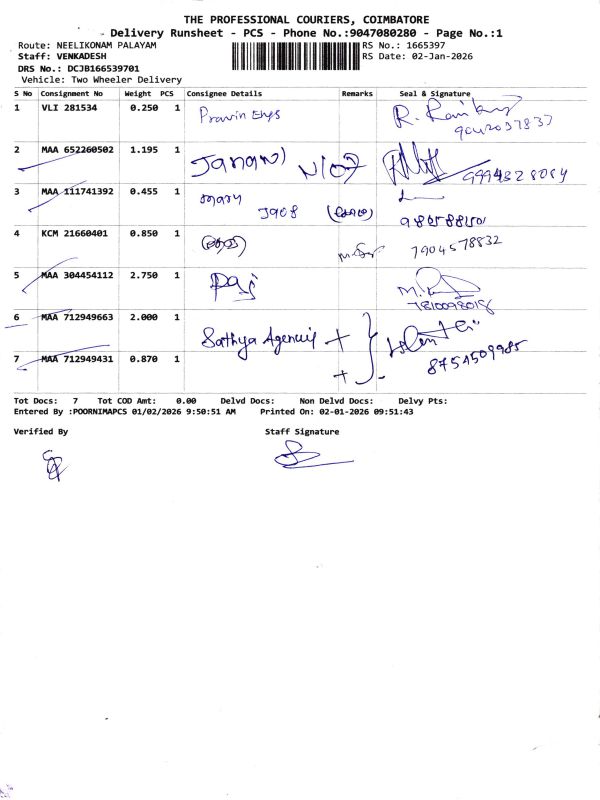 THE PROFESSIONAL COURIERS, COIMBATORE
Delivery Runsheet - PCS - Phone No.:9047080280 - Page No.:1
Route: NEELIKONAM PALAYAM RS No.: 1665397
Staff: VENKADESH RS Date: 02-Jan-2026
DRS No.: DCJB166539701
Vehicle: Two Wheeler Delivery
S No Consignment No Weight PCS Consignee Details Remarks Seal & Signature
1 VLI 281534 0.250 1 Pravin Engs
2 MAA 652260502 1.195 1 Janani 9994328064
3 MAA 111741392 0.455 1 mary
4 KCM 21660401 0.850 1 7904578832
5 MAA 304454112 2.750 1 7810098018
6 MAA 712949663 2.000 1 Sathya Agencies +
7 MAA 712949431 0.870 1 + 8754509985
Tot Docs: 7 Tot COD Amt: 0.00 Delvd Docs: Non Delvd Docs: Delvy Pts:
Entered By :POORNIMAPCS 01/02/2026 9:50:51 AM Printed On: 02-01-2026 09:51:43
Verified By Staff Signature